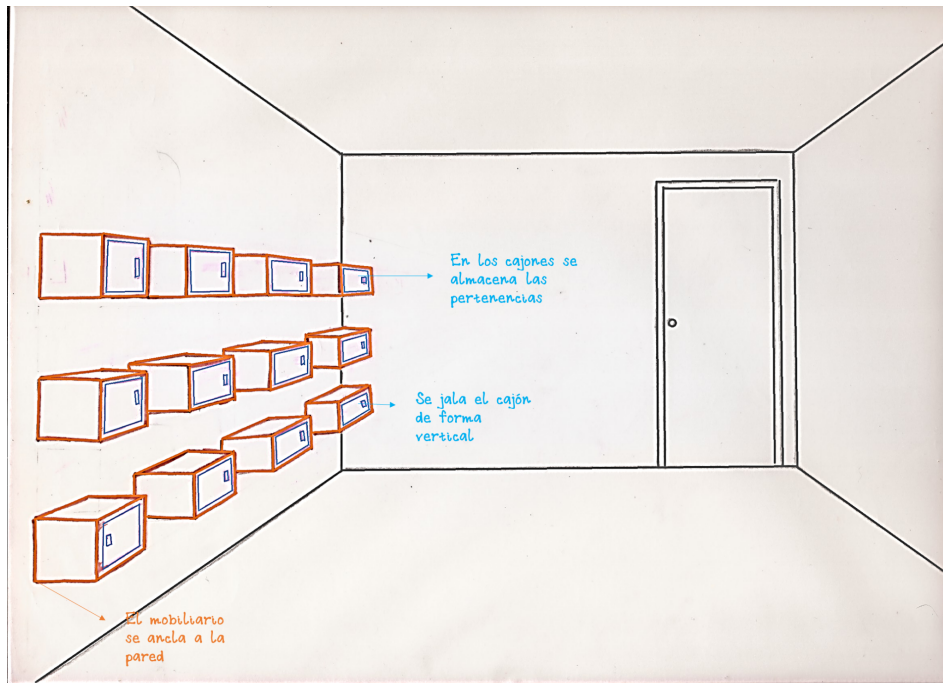 En los cajones se
almacena las
pertenencias
Se jala el cajón
de forma
vertical
El mobiliario
se ancla a la
pared